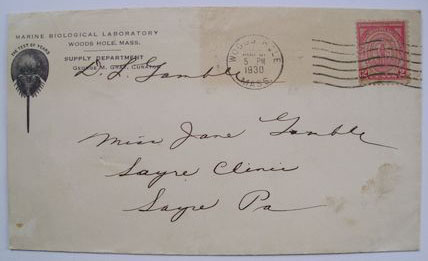 MARINE BIOLOGICAL LABORATORY
WOODS HOLE, MASS.
THE TEST OF YEARS
SUPPLY DEPARTMENT
GEORGE M. GRAY, CURATOR
D. L. Gamble
WOODS HOLE
5 PM
1930
MASS.
Miss Jane Gamble
Sayre Clinic
Sayre Pa